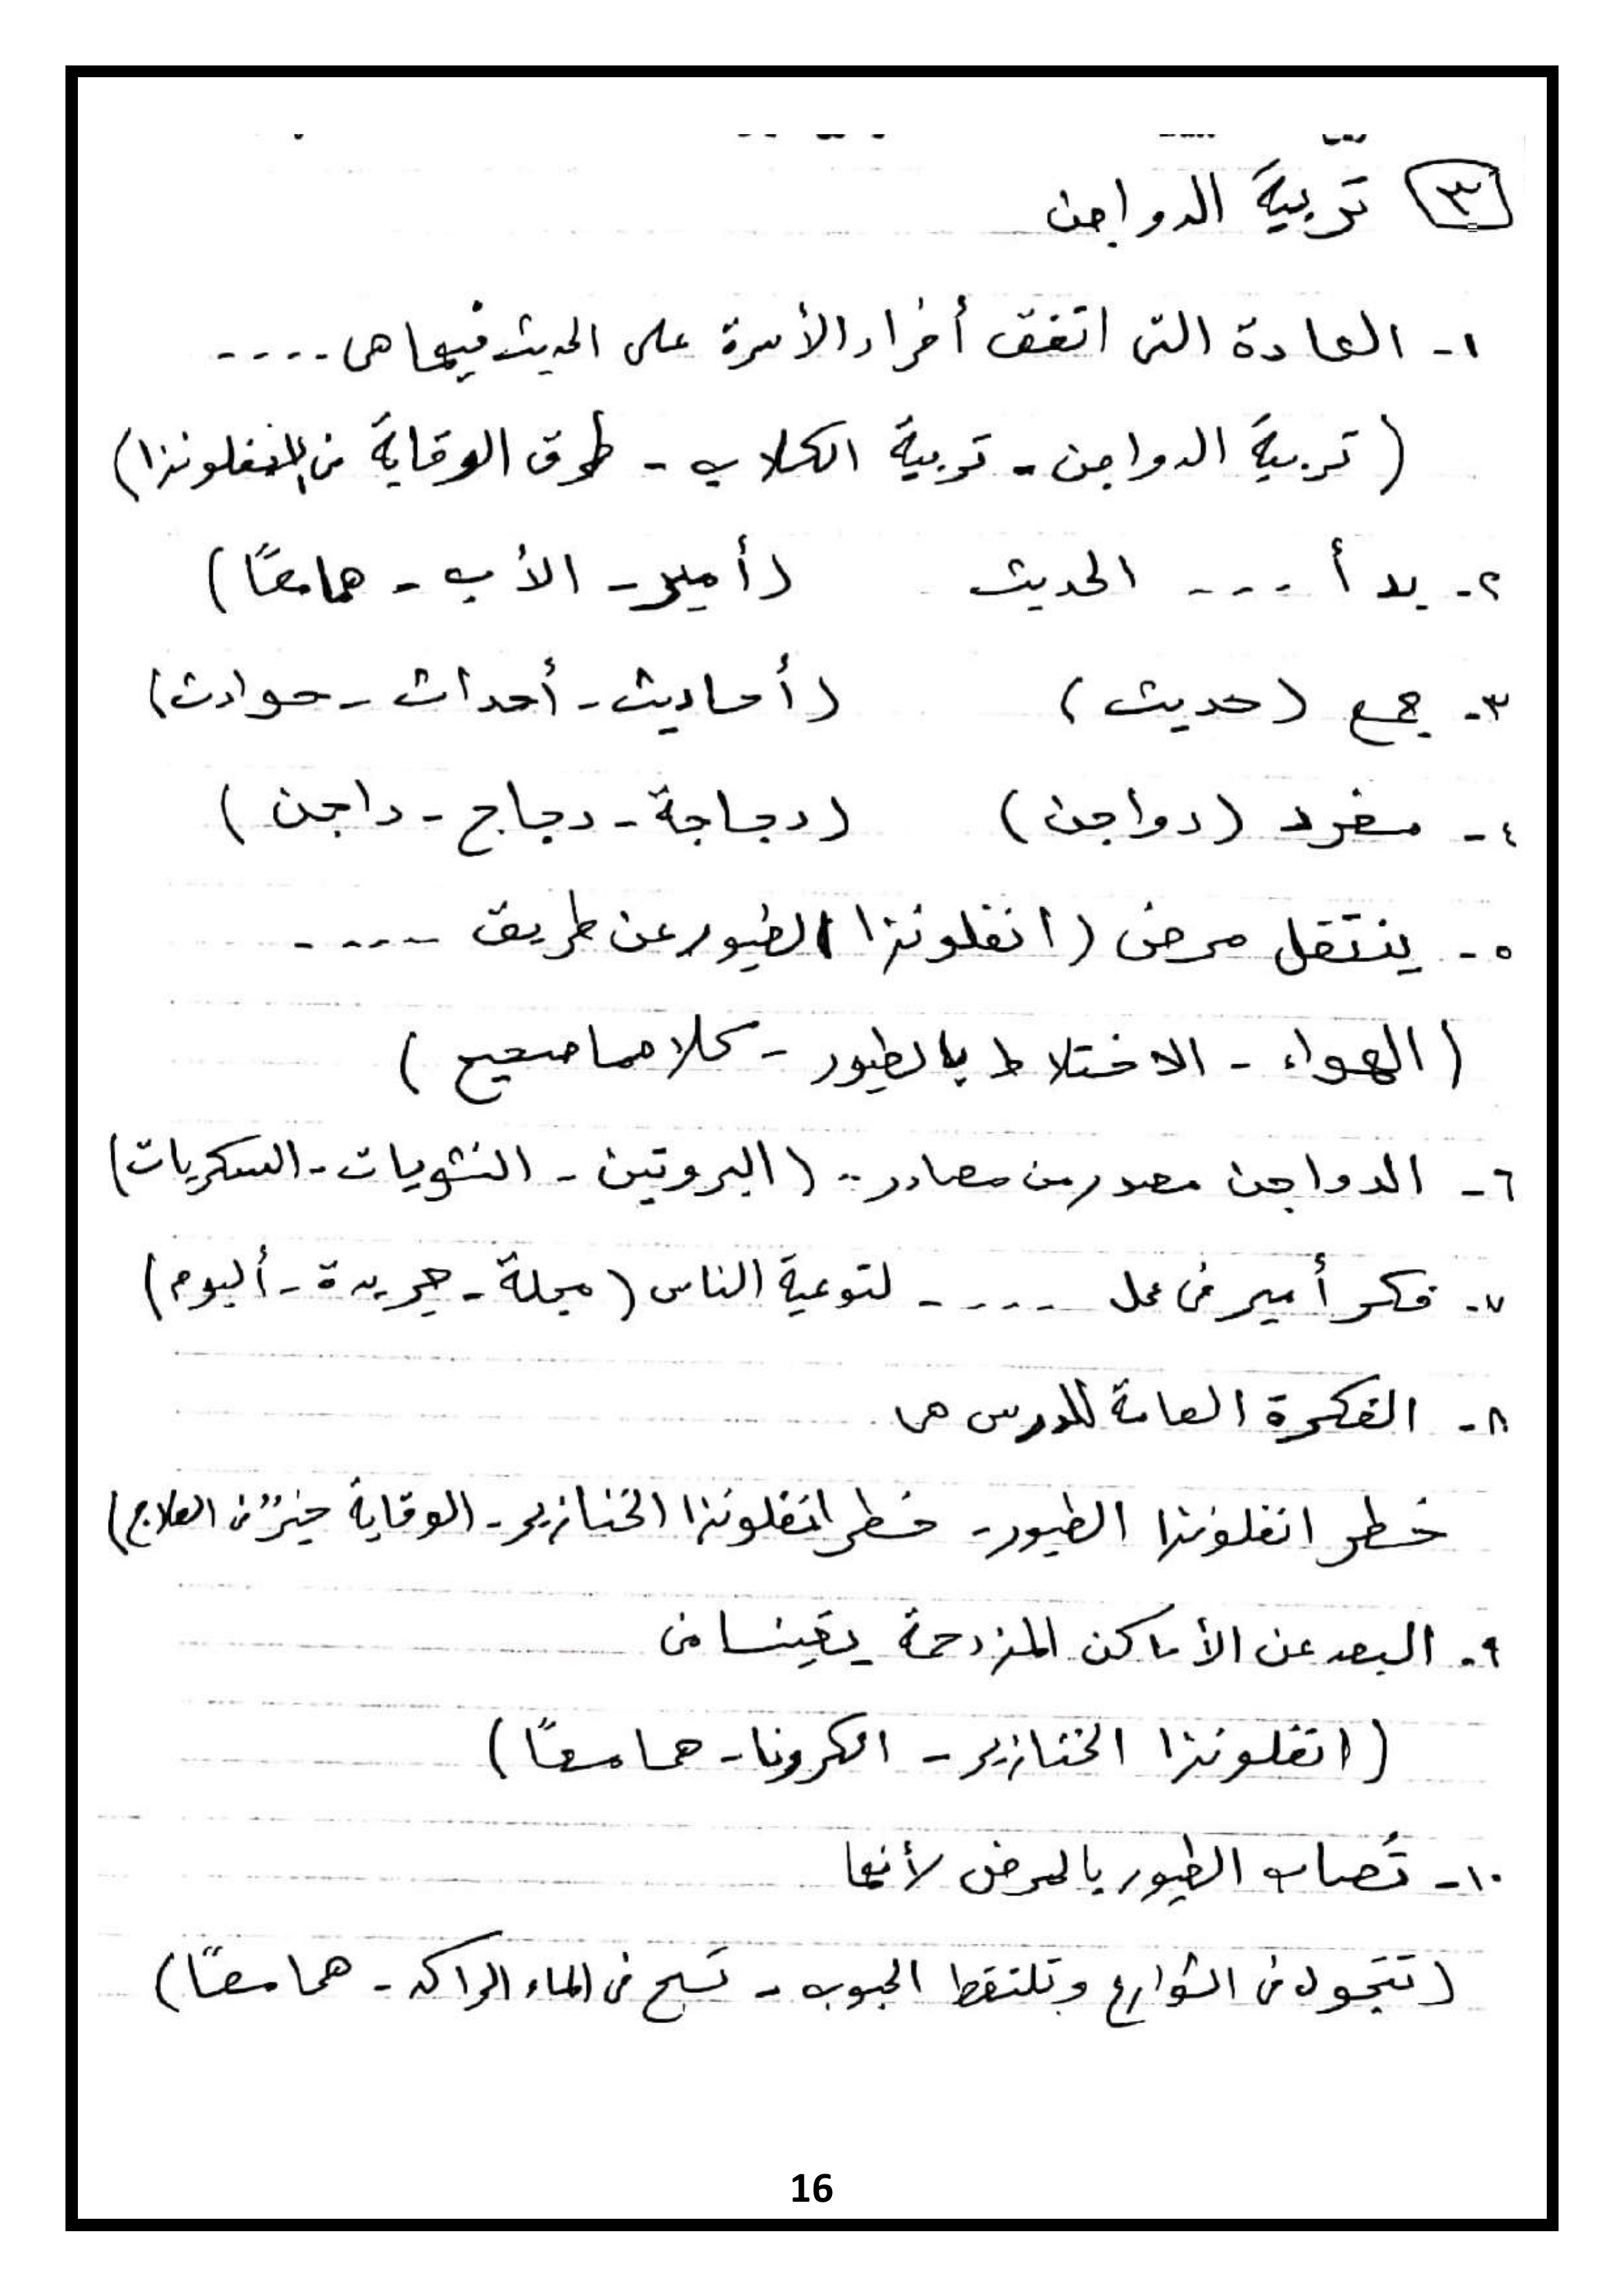 ٣ تَربيةَ الدواجن
١- العادة التى اتفق أفراد الأسرة على الحديث فيها هى ....
(تربيةَ الدواجن - تربية الكلاب - طرق الوقاية من إنفلونزا)
٢- بدأ .... الحديث (أمير - الأب - هما معًا)
٣- جمع (حديث) (أحاديث - أحداث - حوادث)
٤- مفرد (دواجن) (دجاجة - دجاج - داجن)
٥- ينتقل مرض (انفلونزا الطيور عن طريق ....
(الهواء - الاختلاط بالطيور - كلاهما صحيح)
٦- الدواجن مصدر من مصادر .. (البروتين - النشويات - السكريات)
٧- فكر أمير فى عمل .... لتوعية الناس (مجلة - جريدة - ألبوم)
٨- الفكرة العامة للدرس هى
خطر انفلونزا الطيور - خطر انفلونزا الخنازير - الوقاية خيرٌ من العلاج)
٩- البعد عن الأماكن المزدحمة يقينا من
(انفلونزا الخنازير - الكرونا - هما معًا)
١٠- تُصاب الطيور بالمرض لأنها
(تتجول فى الشوارع وتلتقط الحبوب - تَسبح فى الماء الراكد - هما معًا)
16